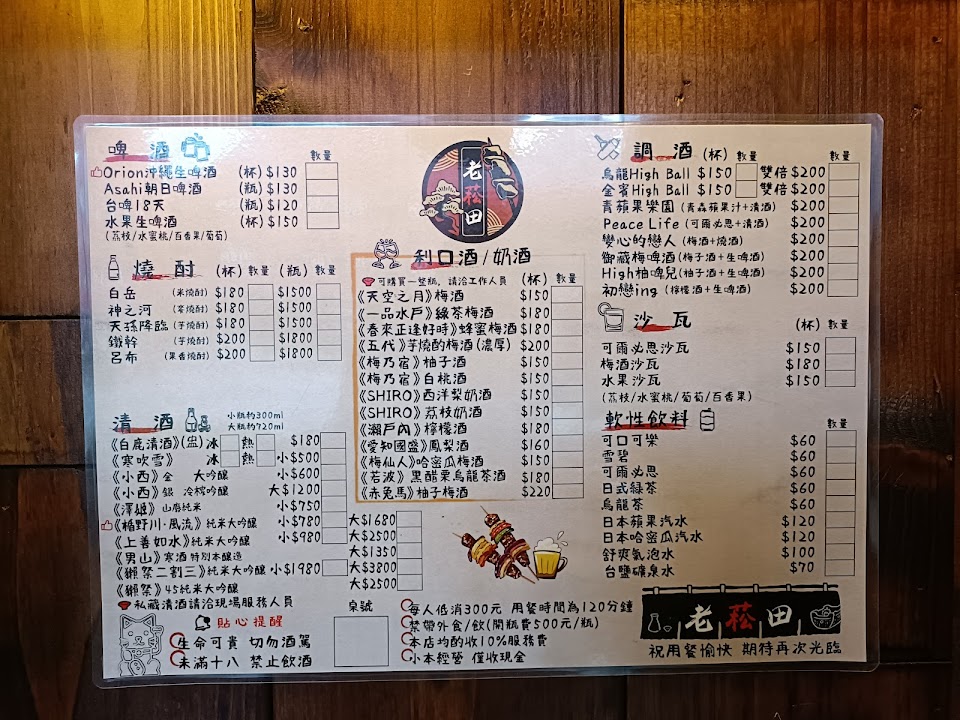 啤 酒 數量
Orion沖繩生啤酒 (杯) $130
Asahi朝日啤酒 (瓶) $130
台啤18天 (瓶) $120
水果生啤酒 (杯) $150
(荔枝/水蜜桃/百香果/葡萄)
燒 酎 (杯) 數量 (瓶) 數量
白岳 (米燒酎) $180 $1500
神之河 (麥燒酎) $180 $1500
天孫降臨 (芋燒酎) $180 $1500
鐵幹 (芋燒酎) $200 $1800
呂布 (果香燒酎) $200 $1800
清 酒 小瓶約300ml
大瓶約720ml
《白鹿清酒》(盅) 冰 熱 $180
《寒吹雪》 冰 熱 小$500
《小西》金 大吟釀 小$600
《小西》銀 冷榨吟釀 大$1200
《澤姬》山廢純米 小$750
《楯野川·風流》純米大吟釀 小$780 大$1680
《上善如水》純米大吟釀 小$980 大$2500
《男山》寒酒 特別本釀造 大$1350
《獺祭二割三》純米大吟釀 小$1980 大$3800
《獺祭》45純米大吟釀 大$2500
私藏清酒請洽現場服務人員
貼心提醒
生命可貴 切勿酒駕
未滿十八 禁止飲酒
老菘田
利口酒/奶酒
可購買一整瓶，請洽工作人員 (杯) 數量
《天空之月》梅酒 $150
《一品水戶》綠茶梅酒 $180
《春來正逢好時》蜂蜜梅酒 $180
《五代》芋燒酎梅酒(濃厚) $200
《梅乃宿》柚子酒 $150
《梅乃宿》白桃酒 $150
《SHIRO》西洋梨奶酒 $150
《SHIRO》荔枝奶酒 $150
《瀨戶內》檸檬酒 $180
《愛知國盛》鳳梨酒 $160
《梅仙人》哈密瓜梅酒 $150
《若波》黑醋栗烏龍茶酒 $180
《赤兔馬》柚子梅酒 $220
桌號
每人低消300元 用餐時間為120分鐘
禁帶外食/飲(開瓶費500元/瓶)
本店均酌收10%服務費
小本經營 僅收現金
調 酒 (杯) 數量 數量
烏龍High Ball $150 雙倍 $200
金賓High Ball $150 雙倍 $200
青蘋果樂園 (青森蘋果汁+清酒) $200
Peace Life (可爾必思+清酒) $200
變心的戀人 (梅酒+燒酒) $200
御藏梅啤酒 (梅子酒+生啤酒) $200
High柚啤兒 (柚子酒+生啤酒) $200
初戀ing (檸檬酒+生啤酒) $200
沙 瓦 (杯) 數量
可爾必思沙瓦 $150
梅酒沙瓦 $180
水果沙瓦 $150
(荔枝/水蜜桃/葡萄/百香果)
軟性飲料 數量
可口可樂 $60
雪碧 $60
可爾必思 $60
日式綠茶 $60
烏龍茶 $60
日本蘋果汽水 $120
日本哈密瓜汽水 $120
舒爽氣泡水 $100
台鹽礦泉水 $70
老菘田
祝用餐愉快 期待再次光臨